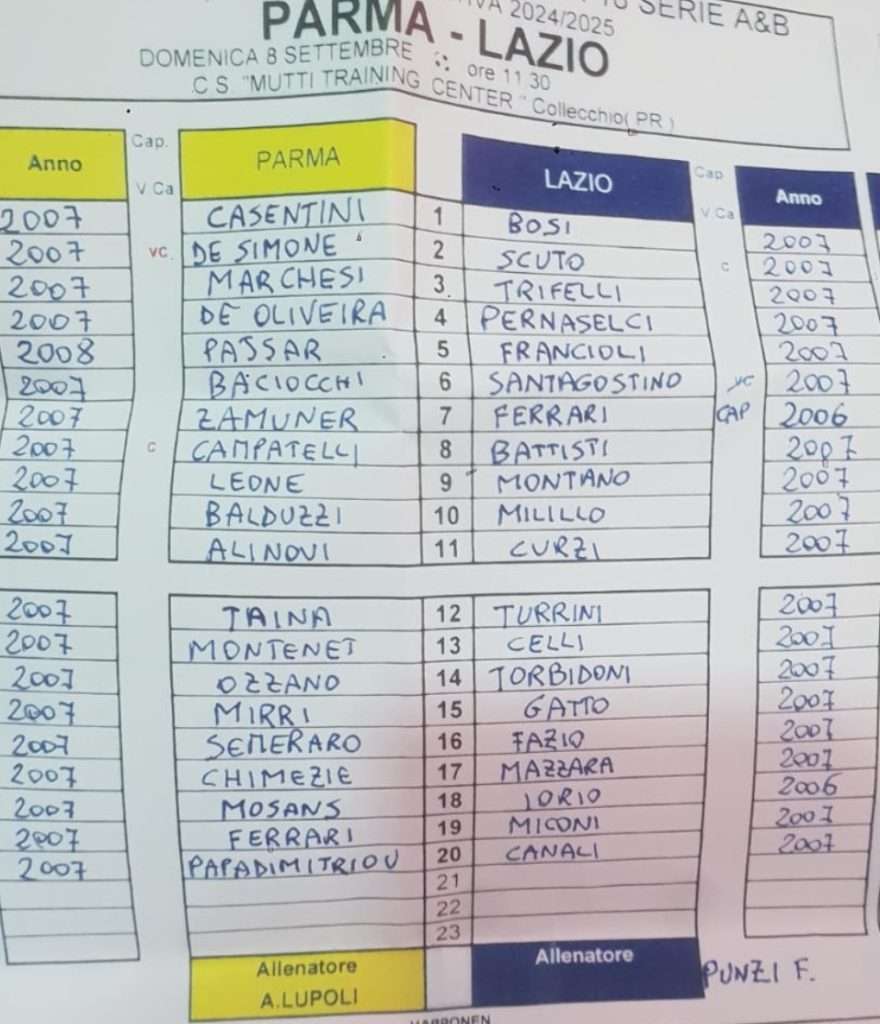 SERIE A&B
2024/2025
PARMA - LAZIO
DOMENICA 8 SETTEMBRE ore 11 30
C S "MUTTI TRAINING CENTER" Collecchio( PR )
Anno Cap. V Ca PARMA LAZIO Cap V.Ca Anno
2007 CASENTINI 1 BOSI 2007
2007 VC. DE SIMONE 2 SCUTO C 2007
2007 MARCHESI 3 TRIFELLI 2007
2007 DE OLIVEIRA 4 PERNASELCI 2007
2008 PASSAR 5 FRANCIOLI 2007
2007 BACIOCCHI 6 SANTAGOSTINO VC 2007
2007 ZAMUNER 7 FERRARI CAP 2006
2007 C CAMPATELLI 8 BATTISTI 2007
2007 LEONE 9 MONTANO 2007
2007 BALDUZZI 10 MILILLO 2007
2007 ALINOVI 11 CURZI 2007
2007 TAINA 12 TURRINI 2007
2007 MONTENET 13 CELLI 2007
2007 OZZANO 14 TORBIDONI 2007
2007 MIRRI 15 GATTO 2007
2007 SEMERARO 16 FAZIO 2007
2007 CHIMEZIE 17 MAZZARA 2007
2007 MOSANS 18 IORIO 2006
2007 FERRARI 19 MICONI 2007
2007 PAPADIMITRIOU 20 CANALI 2007
21
22
23
Allenatore Allenatore PUNZI F.
A.LUPOLI